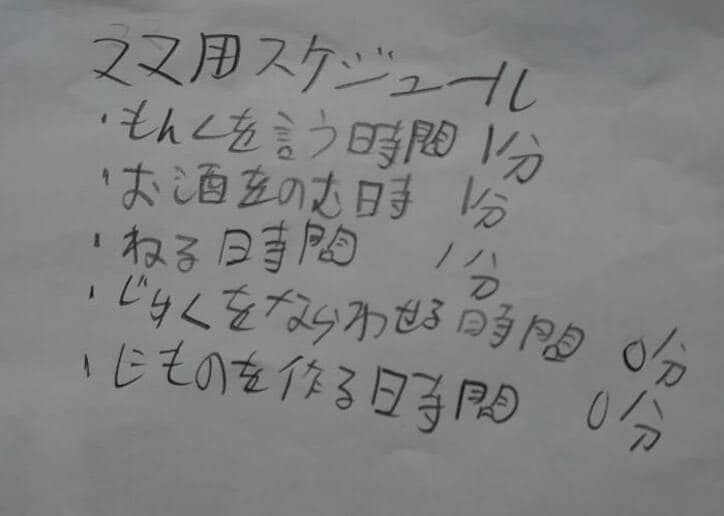 ママ用スケジュール
・もんくを言う時間 1分
・お酒をのむ時 1分
・ねる時間 1分
・じゅくをならわせる時間 0分
・にものを作る時間 0分